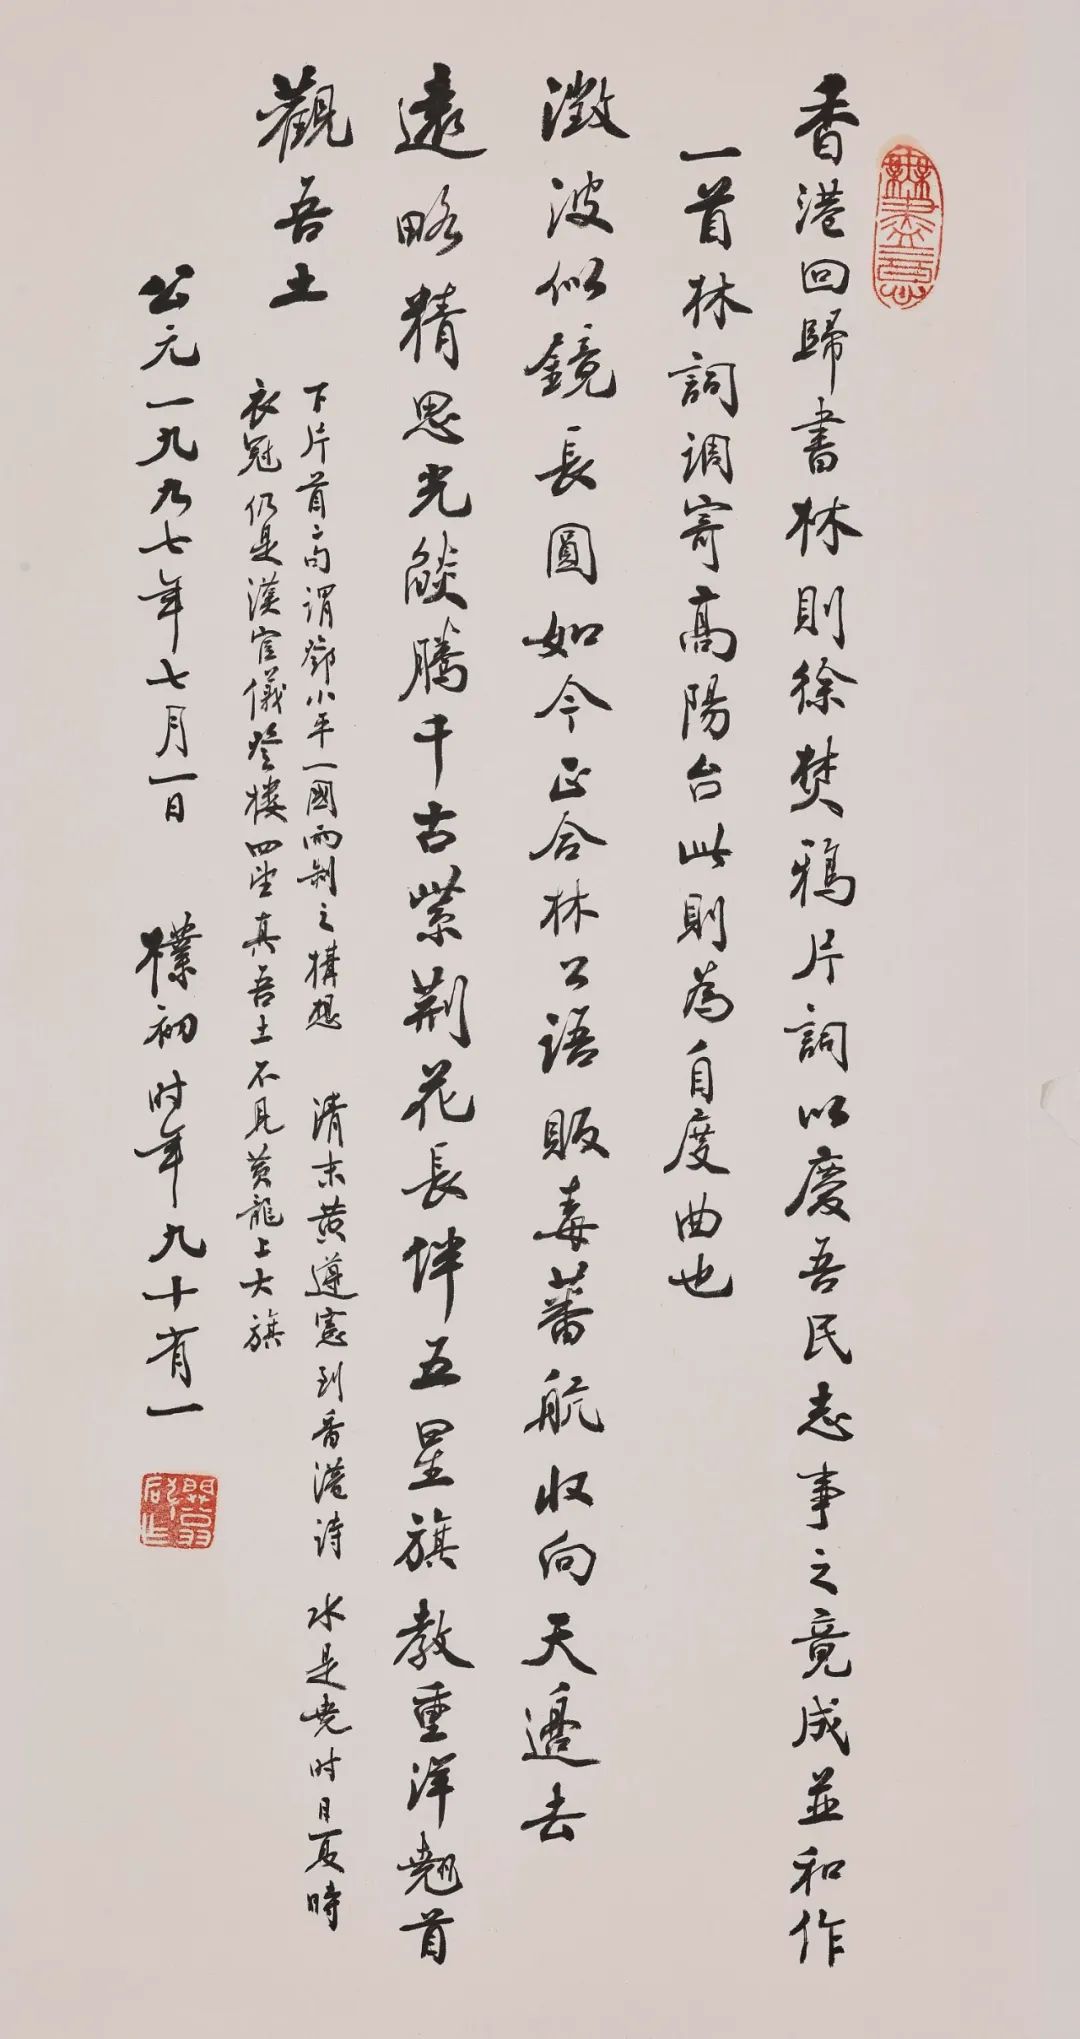 無盡意
香港回歸書林則徐焚鴉片詞以慶吾民志事之竟成並和作
一首林詞调寄高陽台此則為自度曲也
澂波似鏡長圓如今正合林公語販毒蕃航收向天邊去
遠略精思光燄騰千古紫荆花長伴五星旗教重洋翹首
觀吾土
下片首二句谓鄧小平一國两制之構想 清末黄遵憲到香港诗 水是堯时日夏時
衣冠仍是漢官儀登樓四望真吾土不見黄龍上大旗
公元一九九七年七月一日 樸初时年九十有一